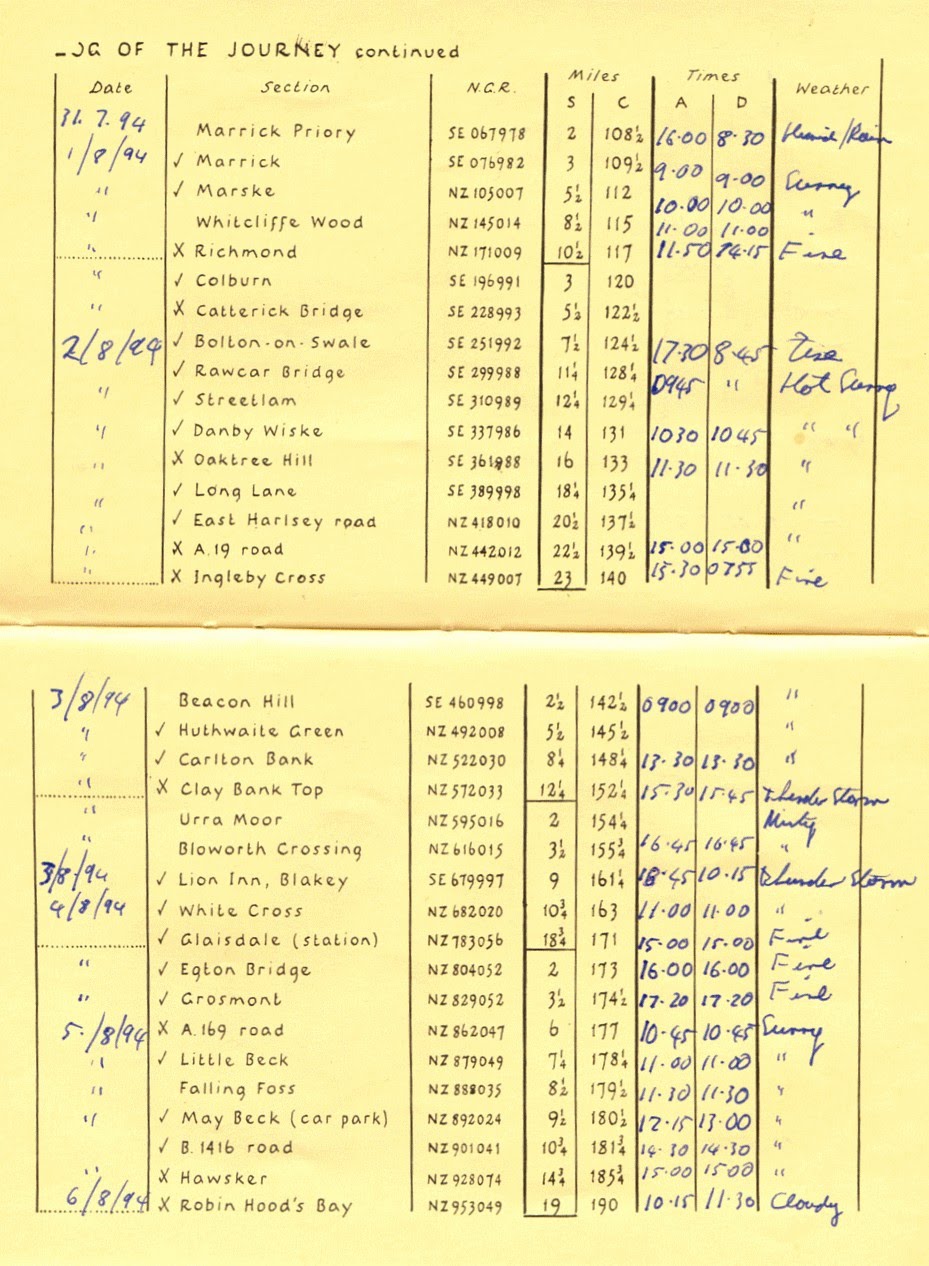 LOG OF THE JOURNEY continued
Date Section N.G.R. Miles Times Weather
S C A D
31.7.94 Marrick Priory SE 067978 2 108½ 16.00 8.30 Humid/Rain
1/8/94 ✓ Marrick SE 076982 3 109½ 9.00 9.00 Sunny
" ✓ Marske NZ 105007 5½ 112 10.00 10.00 "
" Whitcliffe Wood NZ 145014 8½ 115 11.00 11.00
" X Richmond NZ 171009 10½ 117 11.50 14.15 Fine
" ✓ Colburn SE 196991 3 120
" X Catterick Bridge SE 228993 5½ 122½
2/8/94 ✓ Bolton-on-Swale SE 251992 7½ 124½ 17.30 8.45 Fine
✓ Rawcar Bridge SE 299988 11¼ 128¼ 0945 " Hot Sunny
" ✓ Streetlam SE 310989 12¼ 129¼
" ✓ Danby Wiske SE 337986 14 131 1030 1045 " "
" X Oaktree Hill SE 361988 16 133 11.30 11.30 "
" ✓ Long Lane SE 389998 18¼ 135¼ "
" ✓ East Harlsey road NZ 418010 20½ 137½
" X A.19 road NZ 442012 22½ 139½ 15.00 15.00 "
" X Ingleby Cross NZ 449007 23 140 15.30 0755 Fine
3/8/94 Beacon Hill SE 460998 2½ 142½ 0900 0900 "
" ✓ Huthwaite Green NZ 492008 5½ 145½ "
" ✓ Carlton Bank NZ 522030 8¼ 148¼ 13.30 13.30 "
" X Clay Bank Top NZ 572033 12¼ 152¼ 15.30 15.45 Thunder Storm
" Urra Moor NZ 595016 2 154¼ Misty
" Bloworth Crossing NZ 616015 3½ 155¾ 16.45 16.45 "
3/8/94 ✓ Lion Inn, Blakey SE 679997 9 161¼ 18.45 10.15 Thunder Storm
4/8/94 ✓ White Cross NZ 682020 10¾ 163 11.00 11.00 "
✓ Glaisdale (station) NZ 783056 18¾ 171 15.00 15.00 Fine
" ✓ Egton Bridge NZ 804052 2 173 16.00 16.00 Fine
" ✓ Grosmont NZ 829052 3½ 174½ 17.20 17.20 Fine
5./8/94 X A.169 road NZ 862047 6 177 10.45 10.45 Sunny
" ✓ Little Beck NZ 879049 7¼ 178¼ 11.00 11.00 "
" Falling Foss NZ 888035 8½ 179½ 11.30 11.30 "
" ✓ May Beck (car park) NZ 892024 9½ 180½ 12.15 13.00 "
✓ B.1416 road NZ 901041 10¾ 181¾ 14.30 14.30 "
" X Hawsker NZ 928074 14¾ 185¾ 15.00 15.00 "
6/8/94 X Robin Hood's Bay NZ 953049 19 190 10.15 11.30 Cloudy